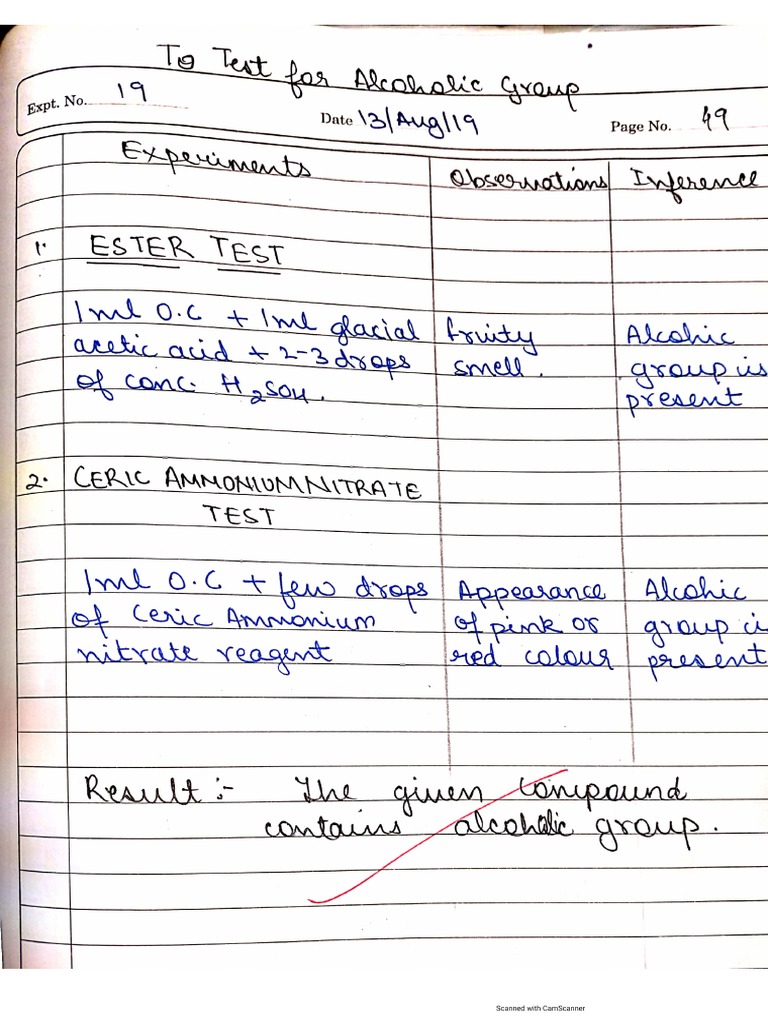 To Test for Alcoholic Group
Expt. No. 19
Date 13/Aug/19
Page No. 49
Experiments
Observations
Inference
1. ESTER TEST
1ml O.C + 1ml glacial
acetic acid + 2-3 drops
of conc. H2SO4.
fruity
smell.
Alcohic
group is
present
2. CERIC AMMONIUM NITRATE
TEST
1ml O.C + few drops
of Ceric Ammonium
nitrate reagent
Appearance
of pink or
red colour
Alcohic
group i
present
Result :- The given Compound
contains alcoholic group.
Scanned with CamScanner